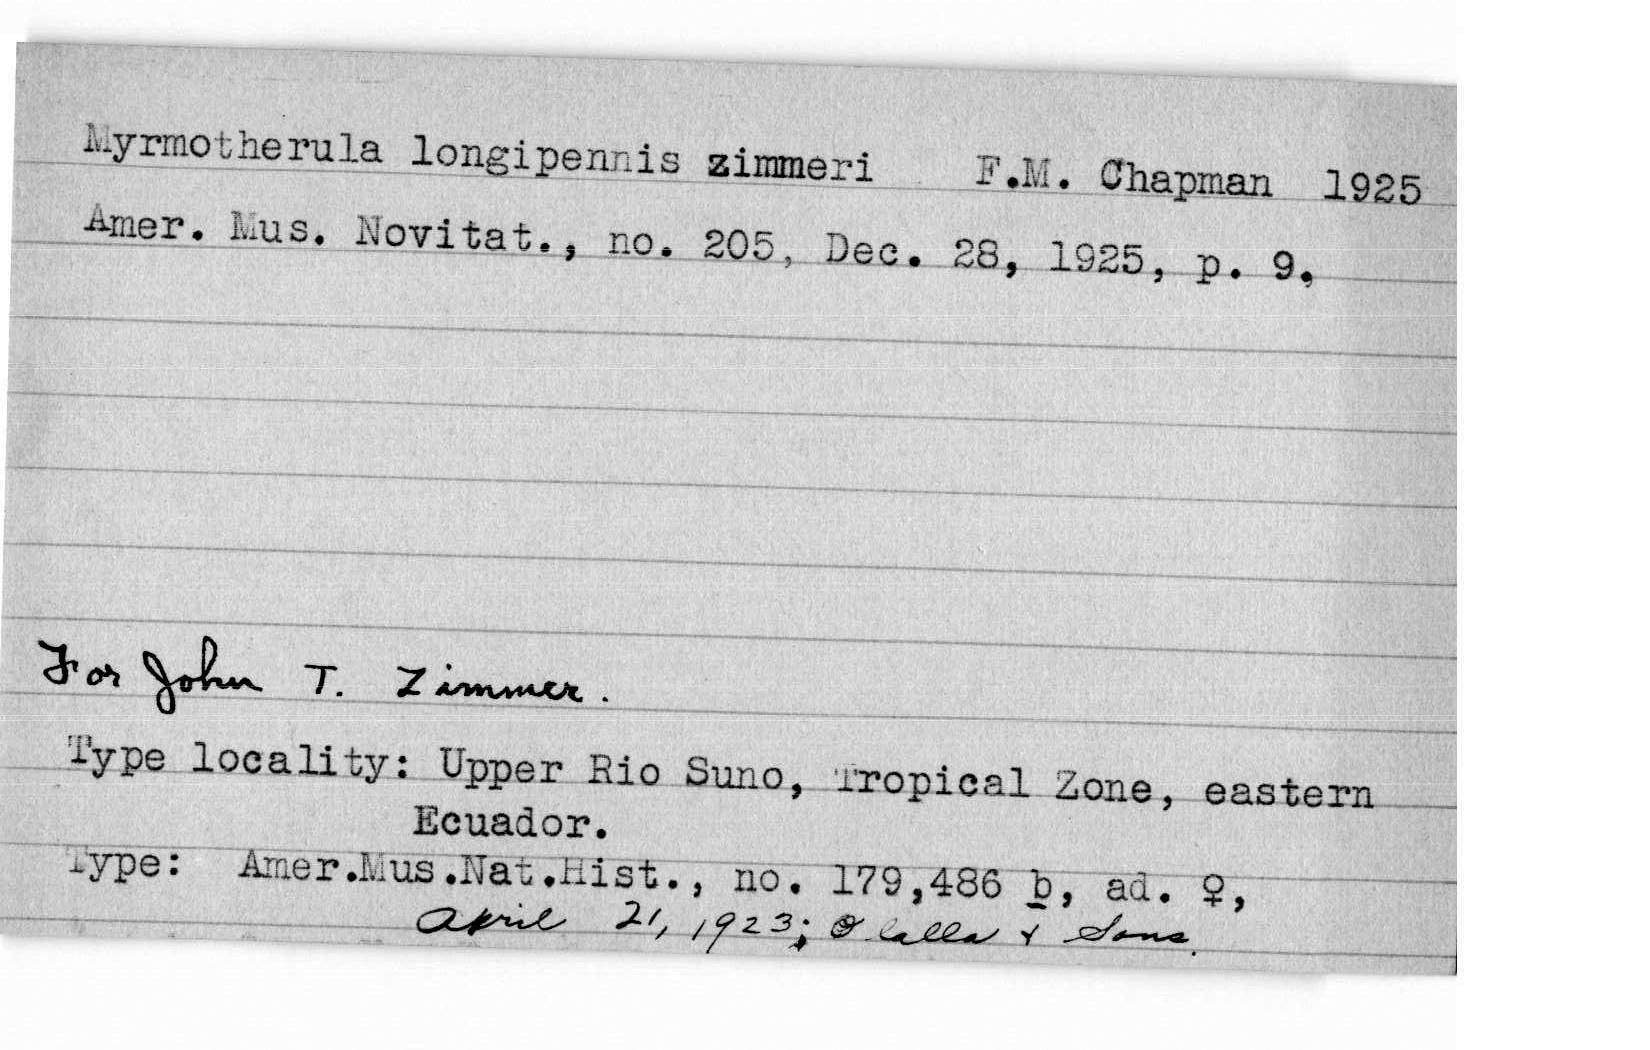 Myrmotherula longipennis zimmeri F.M. Chapman 1925
Amer. Mus. Novitat., no. 205, Dec. 28, 1925, p. 9.
For John T. Zimmer.
Type locality: Upper Rio Suno, Tropical Zone, eastern
Ecuador.
Type: Amer.Mus.Nat.Hist., no. 179,486 b, ad. ♀,
April 21, 1923; Olalla & Sons.